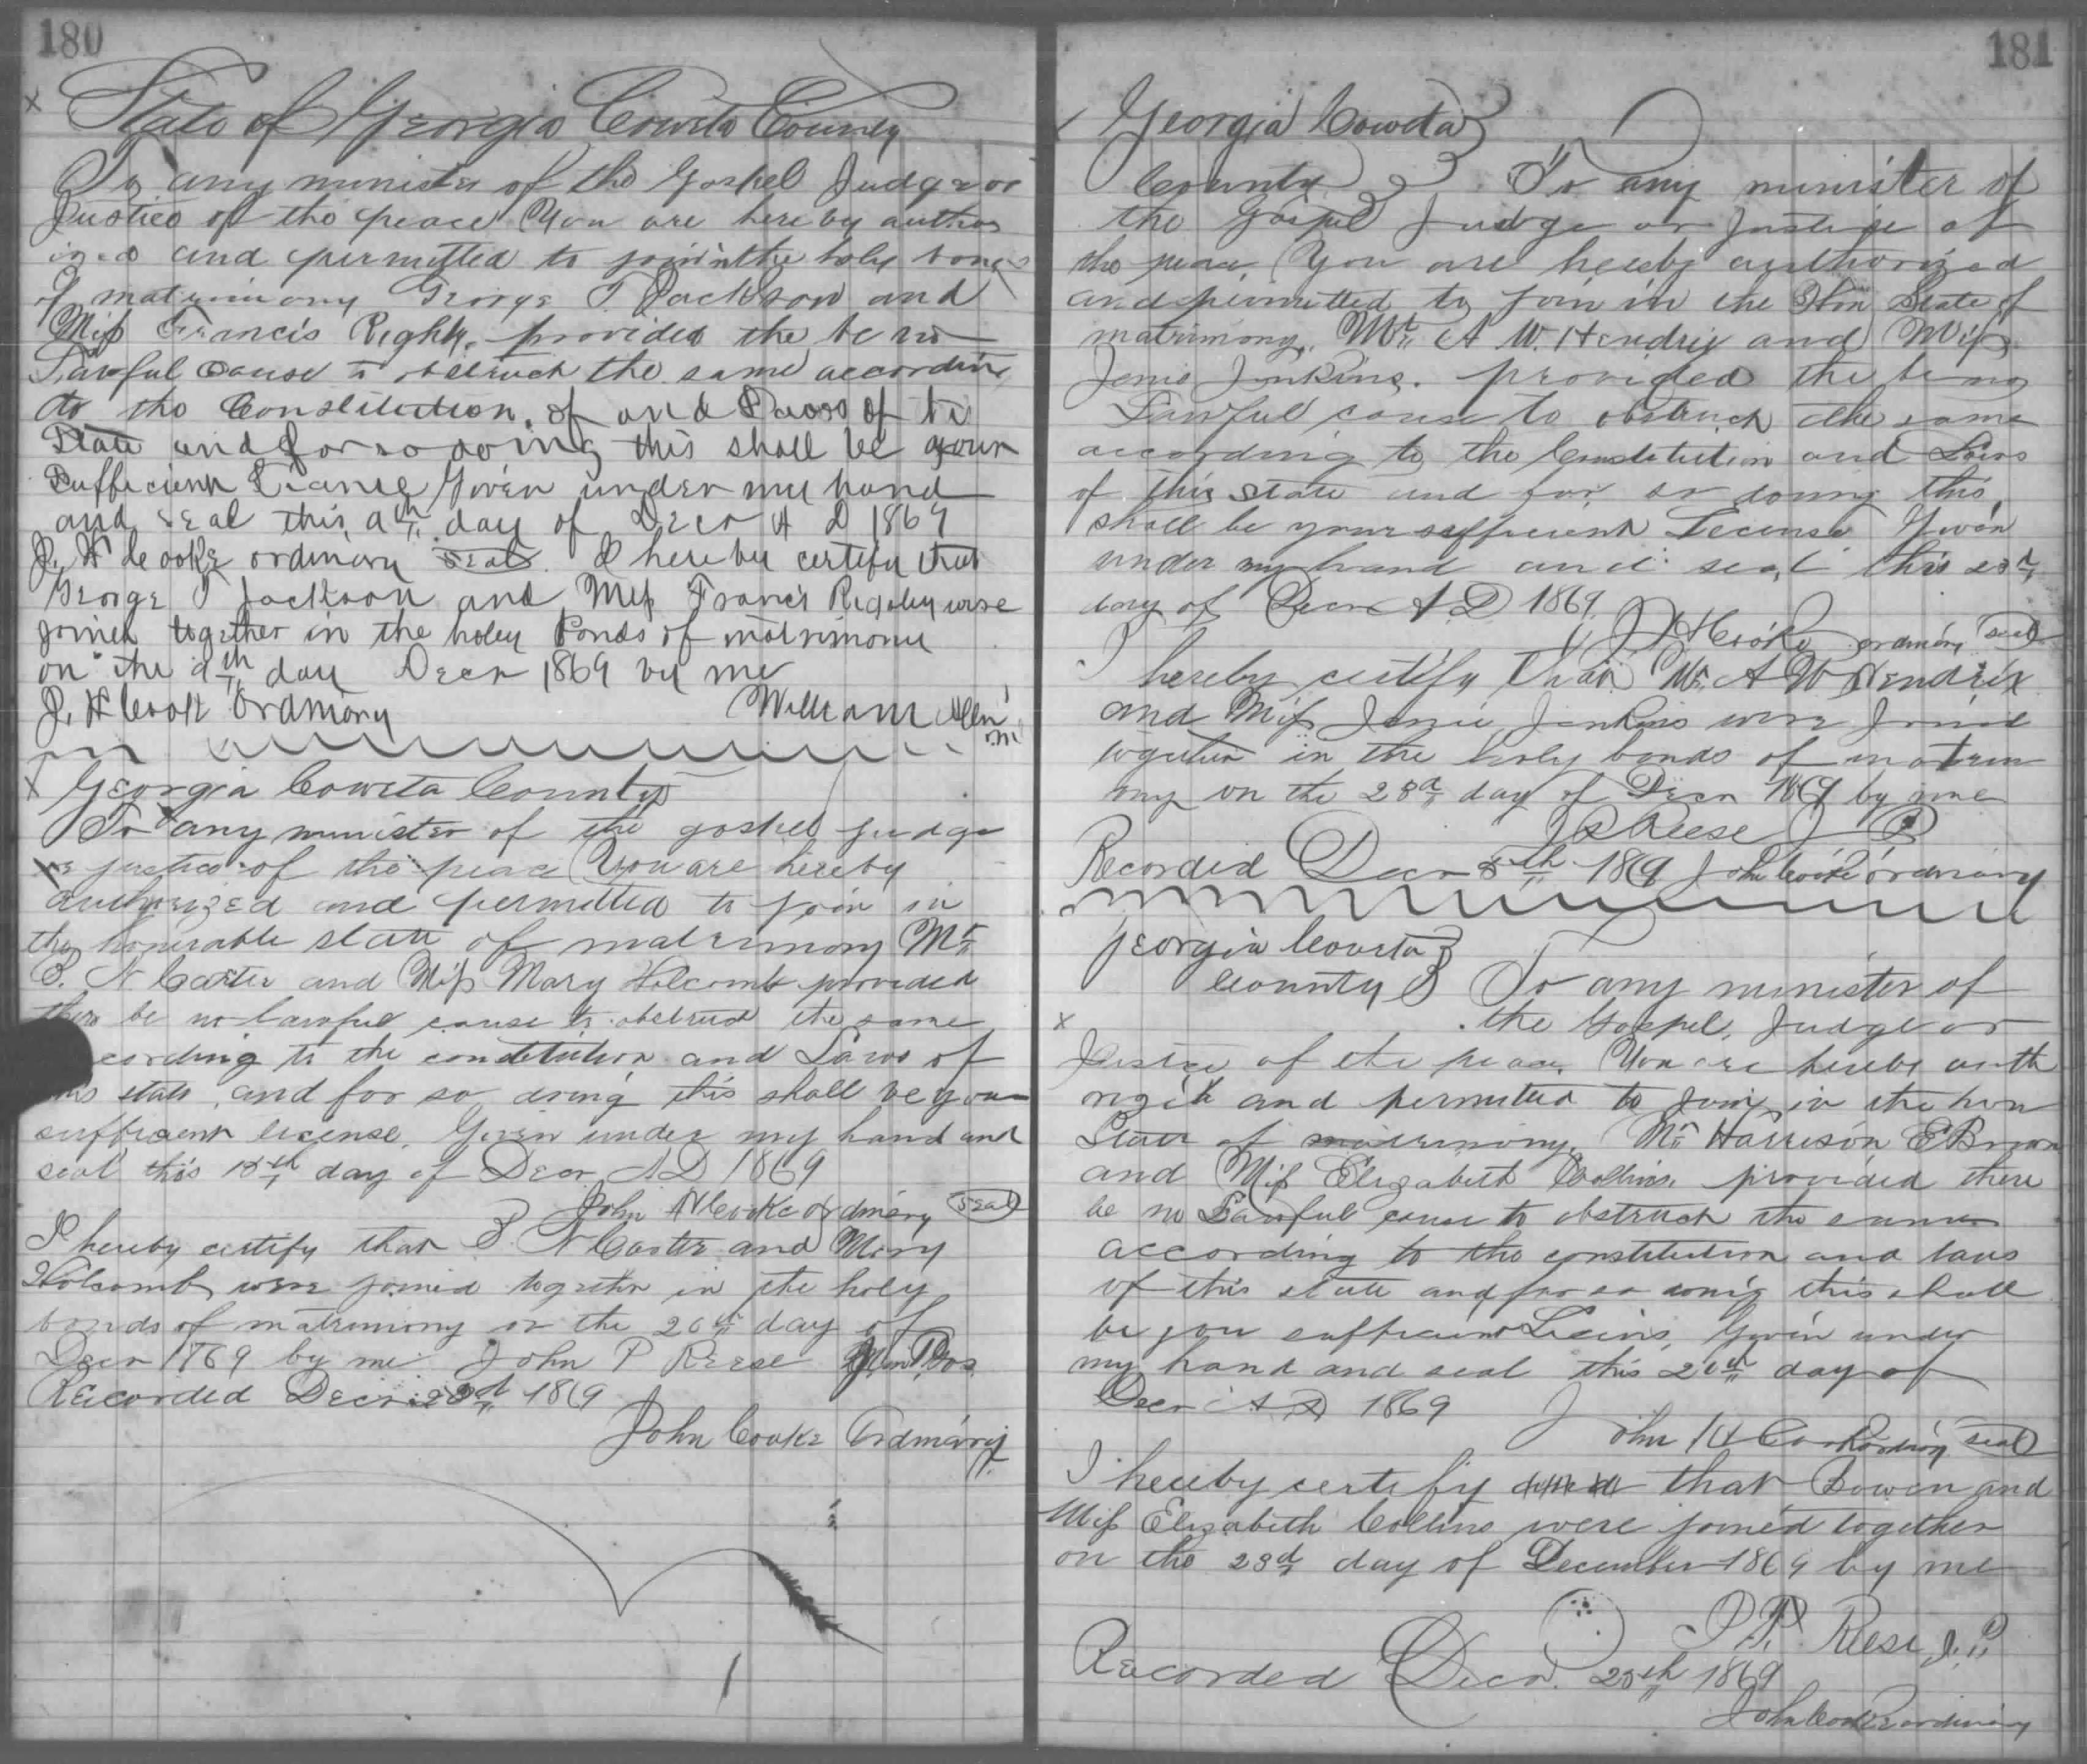 180
State of Georgia Coweta County
To any minister of the Gospel Judge or
Justice of the peace You are hereby author
ized and permitted to join in the holy bonds
of matrimony George T Jackson and
Miss Francis Righly provided the be no
Lawful cause to obstruct the same according
to the Constitution of and Laws of the
State and for so doing this shall be your
Sufficient License Given under my hand
and seal this 9th day of Decr A D 1869
J. H Cooke ordinary seal I hereby certify that
George T Jackson and Miss Francis Rigley were
joined together in the holey Bonds of matrimony
on the 9th day Decr 1869 by me
J. H Cook Ordinary William Allen
Georgia Coweta County
To any minister of the gospel judge
or justice of the peace You are hereby
authorized and permitted to join in
the honorable state of matrimony Mr
N Carter and Miss Mary Holcomb provided
there be no lawful cause to obstruct the same
cording to the constitution and Laws of
this state and for so doing this shall be your
sufficient license. Given under my hand and
seal this 18th day of Decr A D 1869
John H Cooke ordinary seal
I hereby certify that N Carter and Mary
Holcomb were joined together in the holy
bonds of matrimony on the 20th day of
Decr 1869 by me John P Reese
Recorded Decr 1869
John Cooke Ordinary
181
Georgia Coweta
County To any minister of
the Gospel Judge or Justice of
the peace. You are hereby authorized
and permitted to join in the Hon State of
matrimony. Mr A W. Hendrix and Miss
Jenkins. provided the be no
Lawful cause to obstruct the same
according to the Constitution and Laws
of this state and for so doing this
shall be your sufficient License Given
under my hand and seal this 23d
day of Decr A. D 1869
J H Cooke ordinary seal
I hereby certify that Mr A W Hendrix
and Miss Jenkins were joined
together in the holy bonds of matrim
ony on the 23d day of Decr 1869 by me
J P Reese J P
Recorded Decr 1869 John Cooke ordinary
Georgia Coweta
County To any minister of
the Gospel, Judge or
Justice of the peace. You are hereby auth
orized and permitted to join in the hon
State of matrimony. Mr Harrison E
and Miss Elizabeth Collins. provided there
be no Lawful cause to obstruct the same
according to the constitution and laws
of this state and for so doing this shall
be you sufficient License. Given under
my hand and seal this 20th day of
Decr A D 1869
John H Cooke ordinary seal
I hereby certify that Bowen and
Miss Elizabeth Collins were joined together
on the 23d day of December 1869 by me
J. P. Reese J. P.
Recorded Decr. 25th 1869
John Cooke ordinary